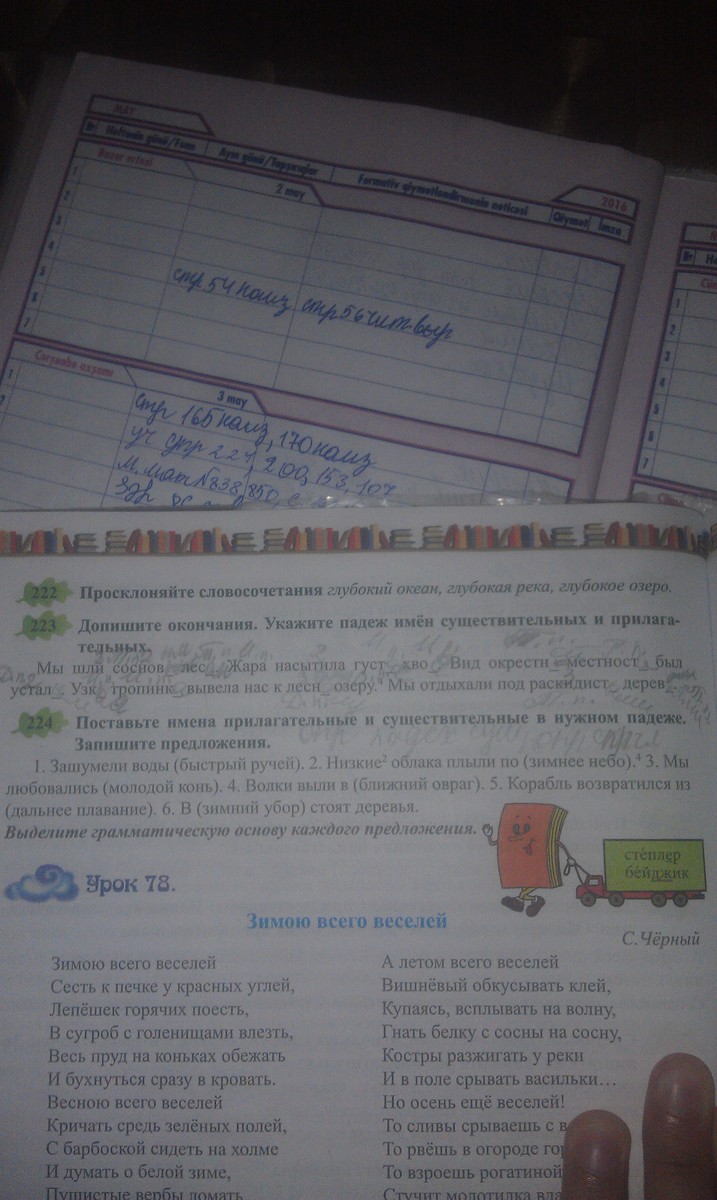 MAY
2016
Nr Həftənin günü/Fənn Ayın günü/Tapşırıqlar Formativ qiymətləndirmənin nəticəsi Qiymət İmza
Bazar ertəsi 2 may
1
2
3
4
5
6
7
стр 54 наиз стр 56 чит выр
Çərşənbə axşamı 3 may
1
2
стр 165 наиз, 170 наиз
уч стр 221, 200, 153, 107
М. мат №838, 850,
1
2
3
4
5
6
7
222 Просклоняйте словосочетания глубокий океан, глубокая река, глубокое озеро.
223 Допишите окончания. Укажите падеж имён существительных и прилага-
тельных.
Мы шли соснов_ лес_. Жара насытила густ_ хво_. Вид окрестн_ местност_ был
устал_. Узк_ тропинк_ вывела нас к лесн_ озеру.⁴ Мы отдыхали под раскидист_ дерев_
224 Поставьте имена прилагательные и существительные в нужном падеже.
Запишите предложения.
1. Зашумели воды (быстрый ручей). 2. Низкие² облака плыли по (зимнее небо).⁴ 3. Мы
любовались (молодой конь). 4. Волки выли в (ближний овраг). 5. Корабль возвратился из
(дальнее плавание). 6. В (зимний убор) стоят деревья.
Выделите грамматическую основу каждого предложения.
стéплер
бéйджик
Урок 78.
Зимою всего веселей
С.Чёрный
Зимою всего веселей
Сесть к печке у красных углей,
Лепёшек горячих поесть,
В сугроб с голенищами влезть,
Весь пруд на коньках обежать
И бухнуться сразу в кровать.
Весною всего веселей
Кричать средь зелёных полей,
С барбоской сидеть на холме
И думать о белой зиме,
Пушистые вербы ломать
А летом всего веселей
Вишнёвый обкусывать клей,
Купаясь, всплывать на волну,
Гнать белку с сосны на сосну,
Костры разжигать у реки
И в поле срывать васильки…
Но осень ещё веселей!
То сливы срываешь с в
То рвёшь в огороде гор
То взроешь рогатиной
Стучит молотилка вда